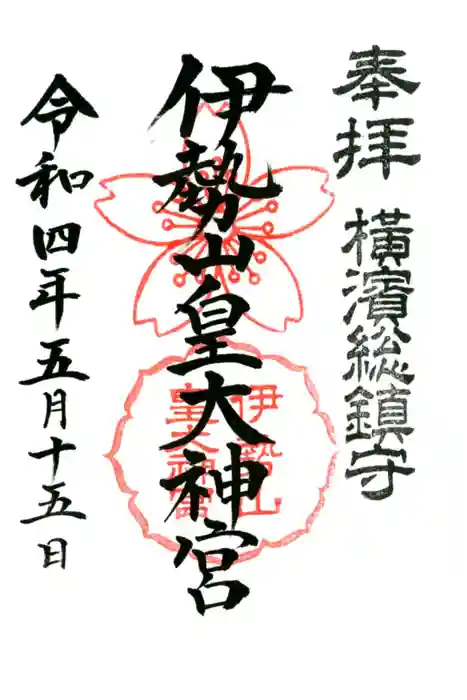 奉拝 横濱総鎮守
伊勢山皇大神宮
伊勢山
皇大神宮
令和四年五月十五日